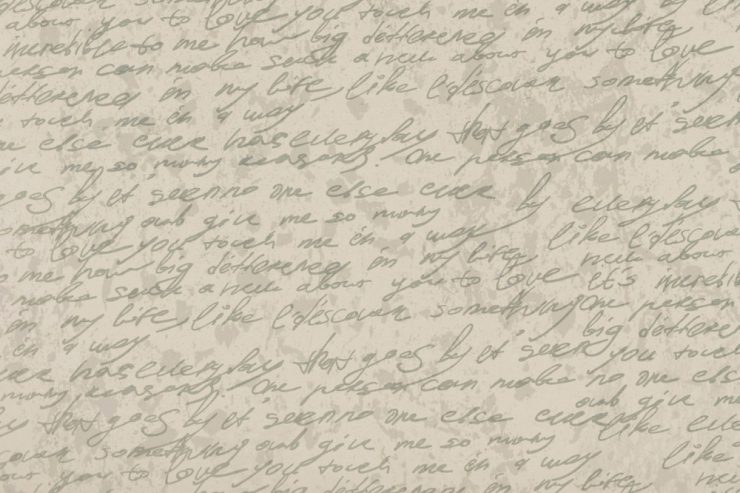 about you to love you touch me in a way by
incredible to me how big differered in my life
person can make such a new about you to love
differered in my life, like I discovar something
touch me in a way
me else ever has everyday that goes by it seem
give me so many reasons One person can make
goes by it seem no one else ever by everyday
something and give me so many
to love you touch me in a way like I discovar
me how big differered in my life new about
make such a new about you to love it's incredible
in my life, like I discovar something One person
in a way big differered
ever has everyday that goes by it seem you touch
many reasons One person can make no one else
and give me
that goes by it seem no one else ever like
something and give me so many
about you to love you touch me in a way like
in my life